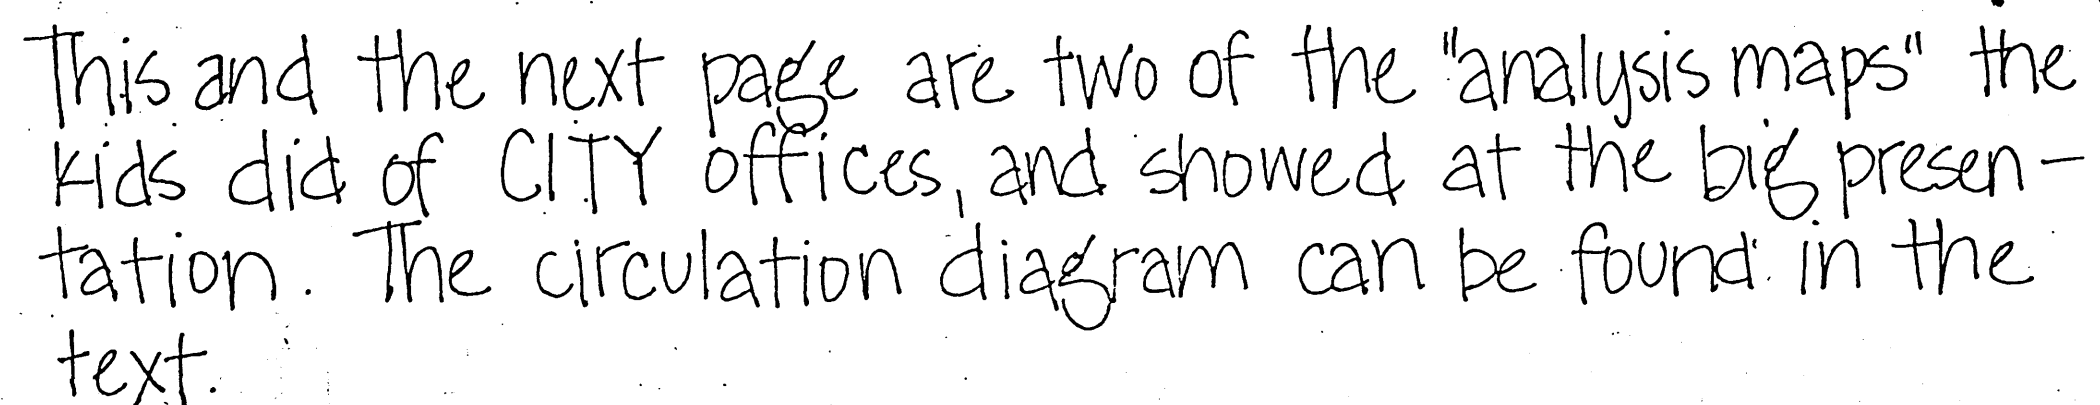 This and the next page are two of the "analysis maps" the
kids did of CITY offices, and showed at the big presen-
tation. The circulation diagram can be found in the
text.